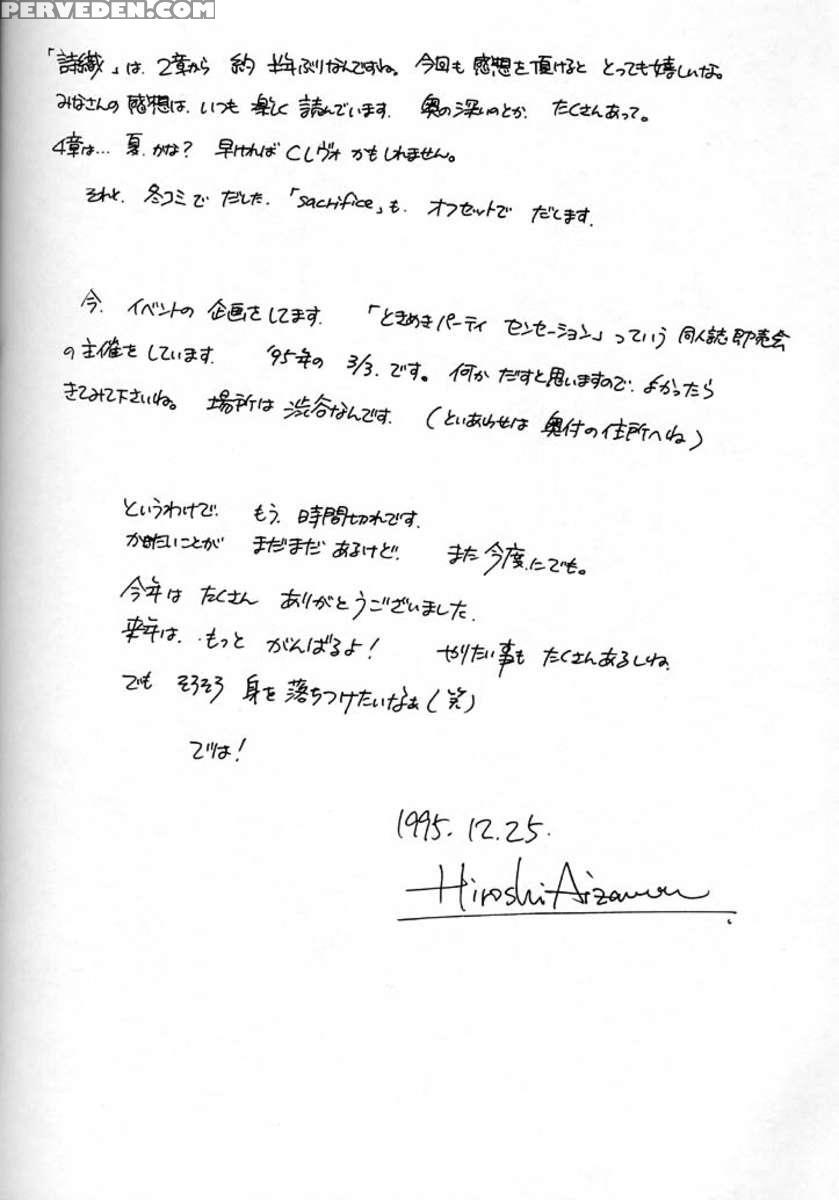 PERVEDEN.COM
「詩織」は、2章から 約 半年ぶりなんですね。今回も 感想を頂けると とっても嬉しいな。
みなさんの 感想は、いつも 楽しく 読んでいます. 奥の深いのとか、たくさんあって。
4章は… 夏.かな? 早ければ CLヴォ かもしれません。
それと、冬コミで だした.「sacrifice」も. オフセットで だします.
今. イベントの 企画をしてます. 「ときめきパーティ センセーション」っていう 同人誌即売会
の主催をしています. '95年の 3/3.です。何か だすと思いますので、よかったら
きてみて下さいね。場所は 渋谷なんです. (といあわせは 奥付の住所へね)
というわけで. もう、時間切れです.
かきたいことが まだまだ あるけど. また 今度.にでも。
今年は たくさん ありがとうございました.
来年は.. もっと がんばるよ! やりたい事も たくさんあるしね.
でも そろそろ 身を 落ちつけたいなぁ(笑)
では!
1995.12.25.
Hiroshi